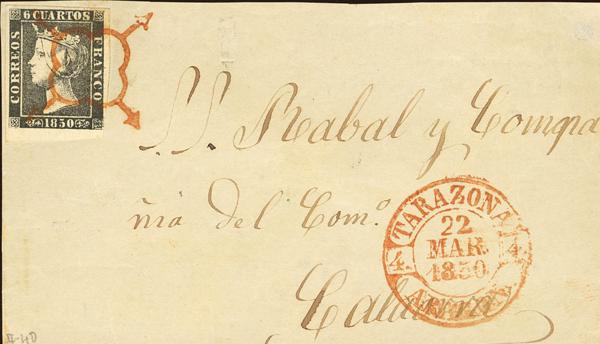 6 CUARTOS
CORREOS
FRANCO
1850
S.S. Rabal y Compa
ñia del Com.º
TARAZONA
22
MAR.
1850
4
4